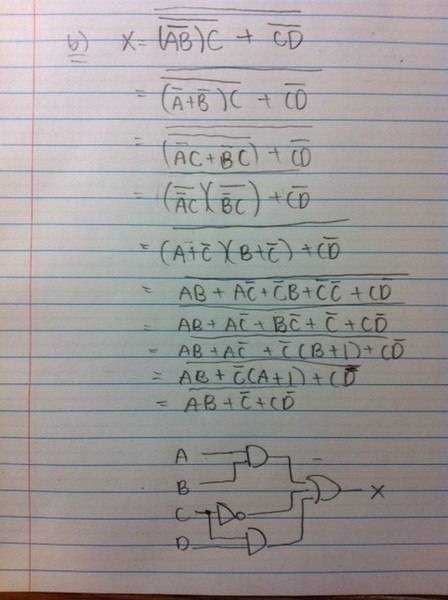 b) X = (A̅B̅)C + C̅D̅
= (A̅+B̅)C + CD̅
= (A̅C+B̅C) + CD̅
= (A̅C)(B̅C) + CD̅
= (A+C̅)(B+C̅) + CD̅
= AB + AC̅ + C̅B + C̅C̅ + CD̅
= AB + AC̅ + BC̅ + C̅ + CD̅
= AB + AC̅ + C̅(B+1) + CD̅
= AB + C̅(A+1) + CD̅
= AB + C̅ + CD̅
A
B
C
D
X